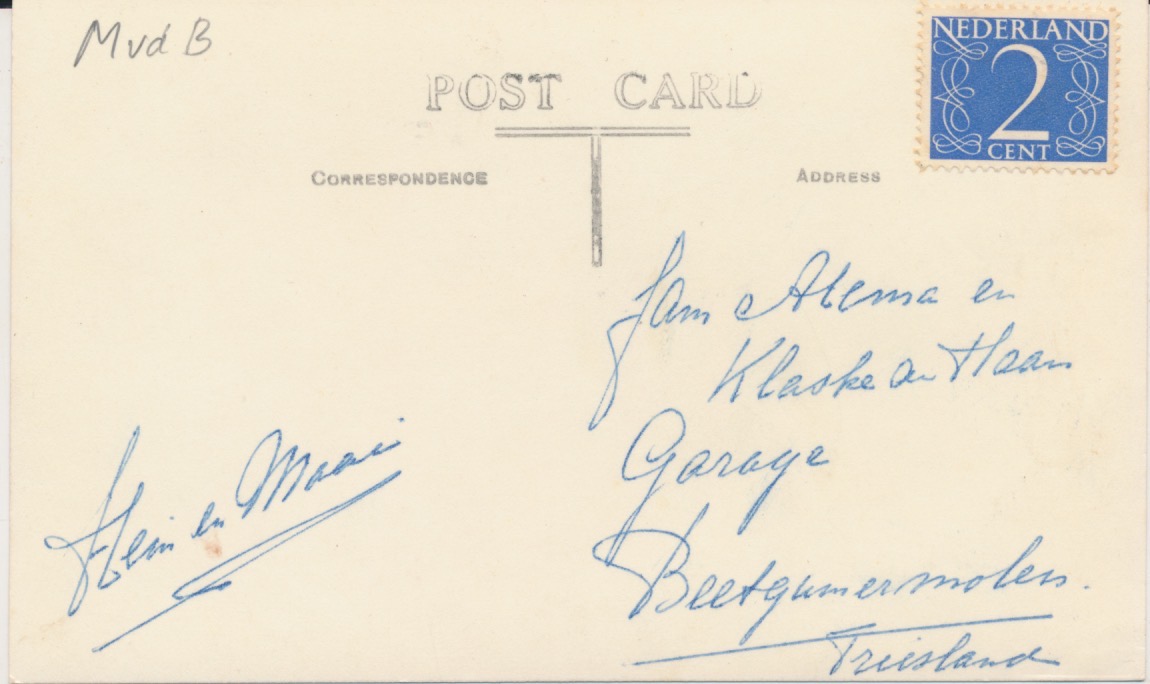 Mvd B
NEDERLAND
2
CENT
POST CARD
CORRESPONDENCE
ADDRESS
Jan Atema en
Klaske de Haan
Garage
Beetgumermolen.
Friesland
Hein en Maaie